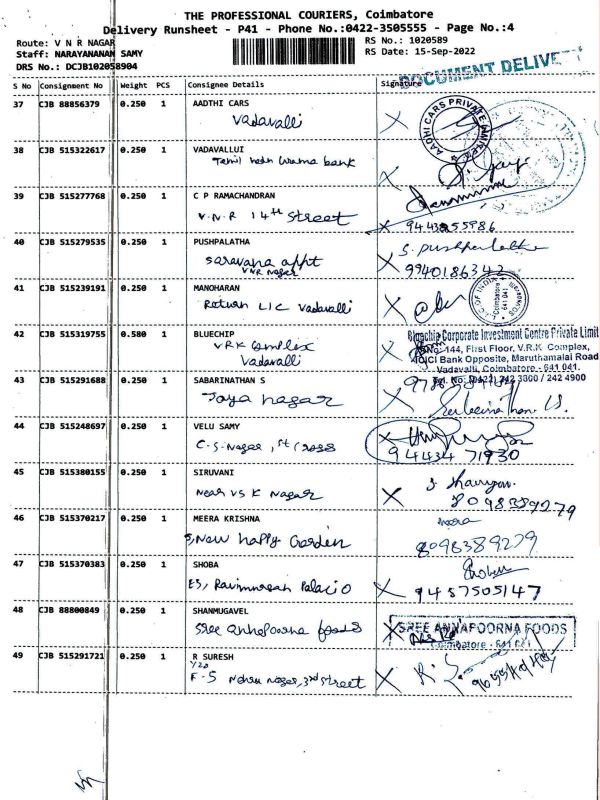 THE PROFESSIONAL COURIERS, Coimbatore
Delivery Runsheet - P41 - Phone No.:0422-3505555 - Page No.:4
Route: V N R NAGAR
Staff: NARAYANANAN SAMY
DRS No.: DCJB102058904
RS No.: 1020589
RS Date: 15-Sep-2022
DOCUMENT DELIVE
S No Consignment No Weight PCS Consignee Details Signature
37 CJB 88856379 0.250 1 AADTHI CARS
Vadavalli
AADHI CARS PRIVATE LIMITED
38 CJB 515322617 0.250 1 VADAVALLUI
Tamil nadu bank
39 CJB 515277768 0.250 1 C P RAMACHANDRAN
V.N.R 14th Street
9443255986
40 CJB 515279535 0.250 1 PUSHPALATHA
S. pushpalatha
Saravana appt
VNR Nagar
9940186342
41 CJB 515239191 0.250 1 MANOHARAN
Return LIC Vadavalli
LIC OF INDIA
Coimbatore
641 041
42 CJB 515319755 0.580 1 BLUECHIP
VRK Complex
Vadavalli
Bluechip Corporate Investment Centre Private Limit
No: 144, First Floor, V.R.K Complex,
ICICI Bank Opposite, Maruthamalai Road
Vadavalli, Coimbatore - 641 041.
Tel. No. (0422) 242 3800 / 242 4900
43 CJB 515291688 0.250 1 SABARINATHAN S
Jaya nagar
44 CJB 515248697 0.250 1 VELU SAMY
C.S. Nagar, 1st Cross
94434 71930
45 CJB 515380155 0.250 1 SIRUVANI
Near VS K Nagar
8098389279
46 CJB 515370217 0.250 1 MEERA KRISHNA
meera
5, New happy Garden
8098389279
47 CJB 515370383 0.250 1 SHOBA
E5, Palacio
9487505147
48 CJB 88800849 0.250 1 SHANMUGAVEL
Sree annapoorna foods
SREE ANNAPOORNA FOODS
Coimbatore - 641 041
49 CJB 515291721 0.250 1 R SURESH
F-5 Nehru Nagar, 3rd Street